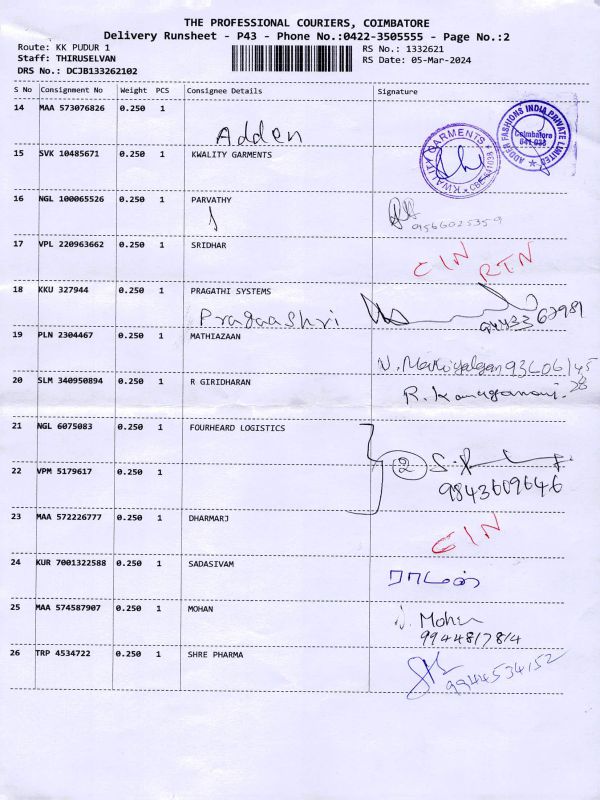 THE PROFESSIONAL COURIERS, COIMBATORE
Delivery Runsheet - P43 - Phone No.:0422-3505555 - Page No.:2
Route: KK PUDUR 1 RS No.: 1332621
Staff: THIRUSELVAN RS Date: 05-Mar-2024
DRS No.: DCJB133262102
S No Consignment No Weight PCS Consignee Details Signature
14 MAA 573076826 0.250 1
Adden
ADDER FASHIONS INDIA PRIVATE LIMITED
Coimbatore
641 038
15 SVK 10485671 0.250 1 KWALITY GARMENTS
KWALITY GARMENTS
16 NGL 100065526 0.250 1 PARVATHY
9566025359
17 VPL 220963662 0.250 1 SRIDHAR
CIN RTN
18 KKU 327944 0.250 1 PRAGATHI SYSTEMS
Pragaashri
19 PLN 2304467 0.250 1 MATHIAZAAN
20 SLM 340950894 0.250 1 R GIRIDHARAN
21 NGL 6075083 0.250 1 FOURHEARD LOGISTICS
2
22 VPM 5179617 0.250 1
9843609646
23 MAA 572226777 0.250 1 DHARMARJ
CIN
24 KUR 7001322588 0.250 1 SADASIVAM
25 MAA 574587907 0.250 1 MOHAN
Mohan
9944817814
26 TRP 4534722 0.250 1 SHRE PHARMA
9944534152